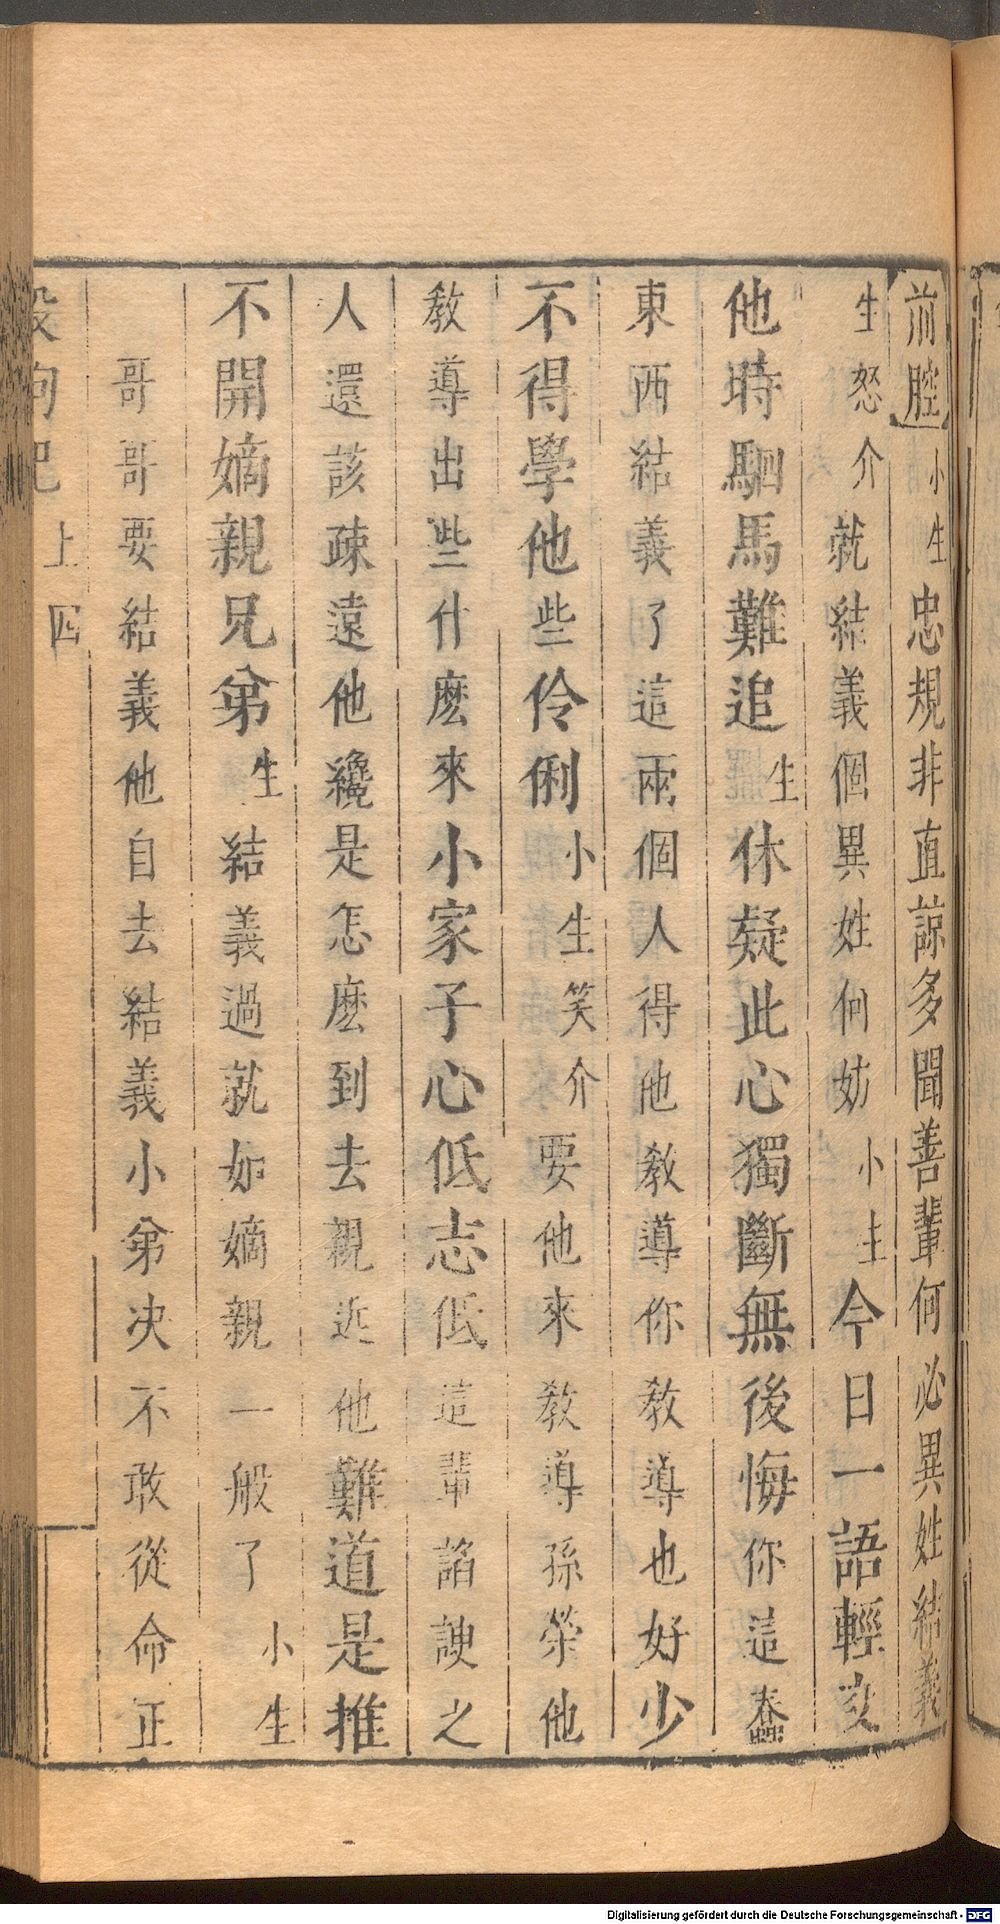 前腔小生忠規非直諒多聞善輩何必異姓結義
生怒介就結義個異姓何妨小生今日一語輕交
他時駟馬難追生休疑此心獨斷無後悔你這蠢
東西結義了這兩個人得他教導你教導也好少
不得學他些伶俐小生笑介要他來教導孫榮他
教導出些什麽來小家子心低志低這輩諂諛之
人還該疎遠他纔是怎麽到去親近他難道是推
不開嫡親兄弟生結義過就如嫡親一般了小生
哥哥要結義他自去結義小弟决不敢從命正
殺狗記 上 四
Digitalisierung gefördert durch die Deutsche Forschungsgemeinschaft - DFG